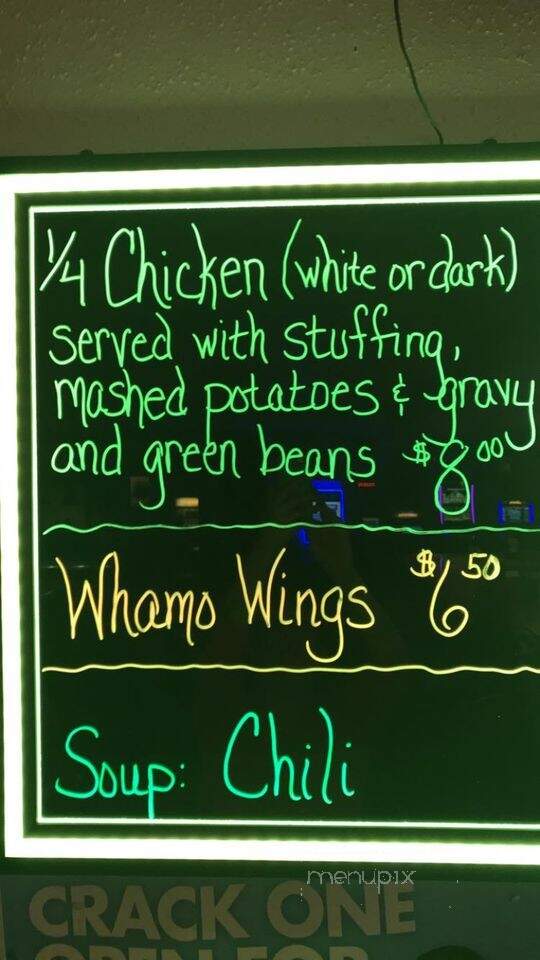 1/4 Chicken (white or dark)
served with stuffing,
mashed potatoes & gravy
and green beans $8.00
Whamo Wings $6.50
Soup: Chili
menupix
CRACK ONE
OPEN FOR